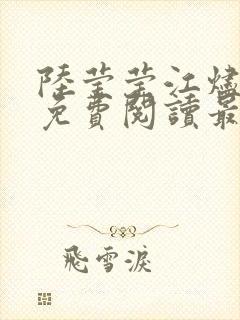 陸莹莹江燼
免費閱讀最
飛雪淚